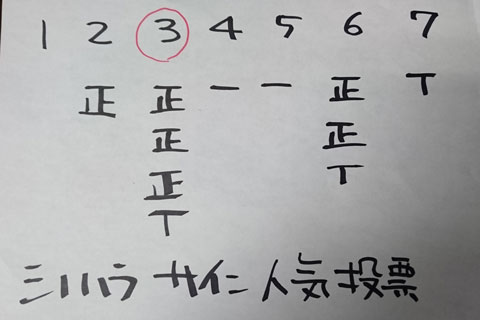 1 2 3 4 5 6 7
正 正 一 一 正 T
正 正
正 T
T
ミハラ サイン人気投票